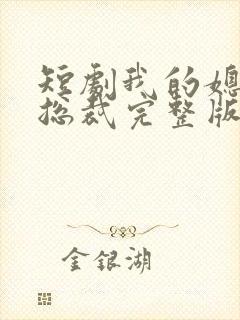 短剧我的媳
总裁完整版
金银湖